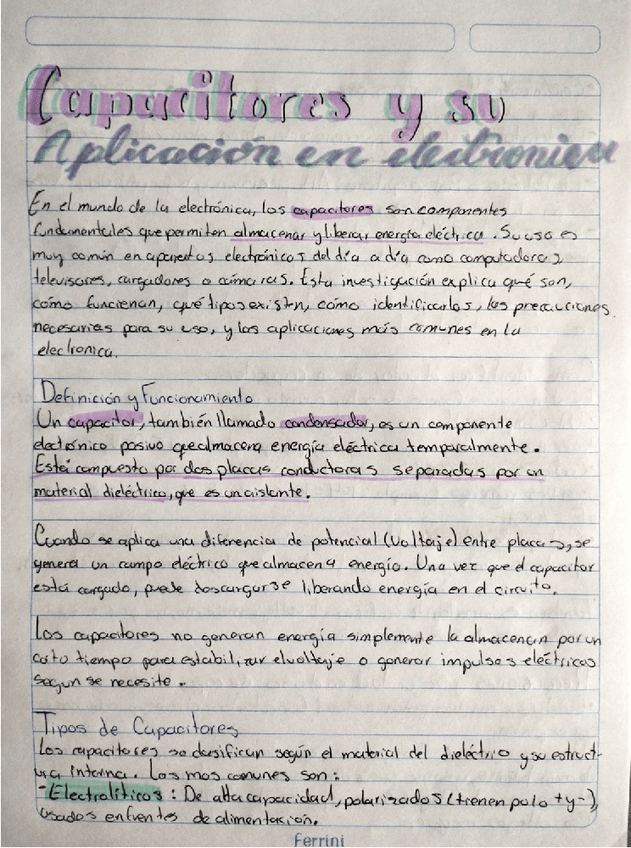 Capacitores y su
Aplicación en electronica
En el mundo de la electrónica, los capacitores son componentes
fundamentales que permiten almacenar y liberar energía eléctrica. Su uso es
muy común en aparatos electrónicos del día a día como computadoras,
televisores, cargadores o cámaras. Esta investigación explica qué son,
cómo funcionan, qué tipos existen, cómo identificarlos, las precauciones
necesarias para su uso, y las aplicaciones más comunes en la
electronica.
Definición y Funcionamiento
Un capacitor, también llamado condensador, es un componente
electrónico pasivo que almacena energía eléctrica temporalmente.
Está compuesto por dos placas conductoras separadas por un
material dieléctrico, que es un aislante.
Cuando se aplica una diferencia de potencial (voltaje) entre placas, se
genera un campo eléctrico que almacena energía. Una vez que el capacitor
está cargado, puede descargarse liberando energía en el circuito.
Los capacitores no generan energía simplemente la almacenan por un
corto tiempo para estabilizar el voltaje o generar impulsos eléctricos
segun se necesite.
Tipos de Capacitores
Los capacitores se clasifican según el material del dieléctrio y su estruct-
ura interna. Los mas comunes son:
-Electrolíticos: De alta capacidad, polarizados (tienen polo + y -),
usados en fuentes de alimentación.
Ferrini